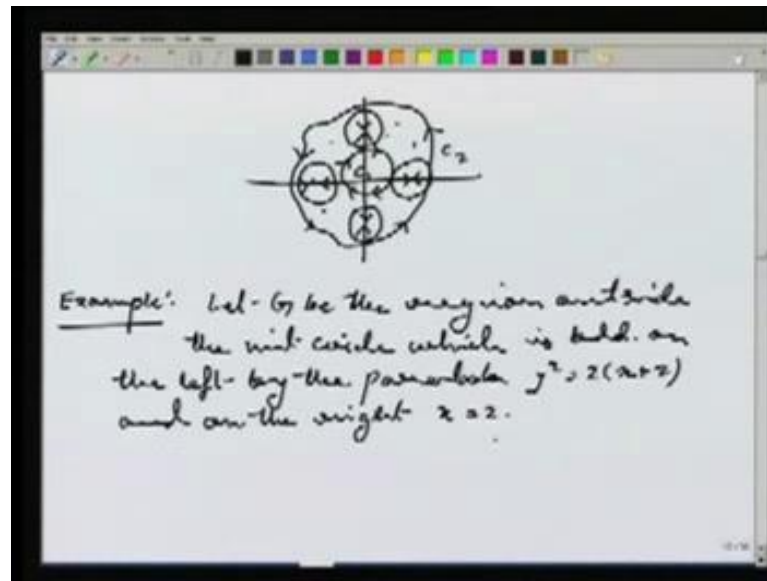 C₂
C₁
Example: Let G be the region outside
the unit circle which is bdd. on
the left by the parabola y² = 2(x+2)
and on the right x = 2.